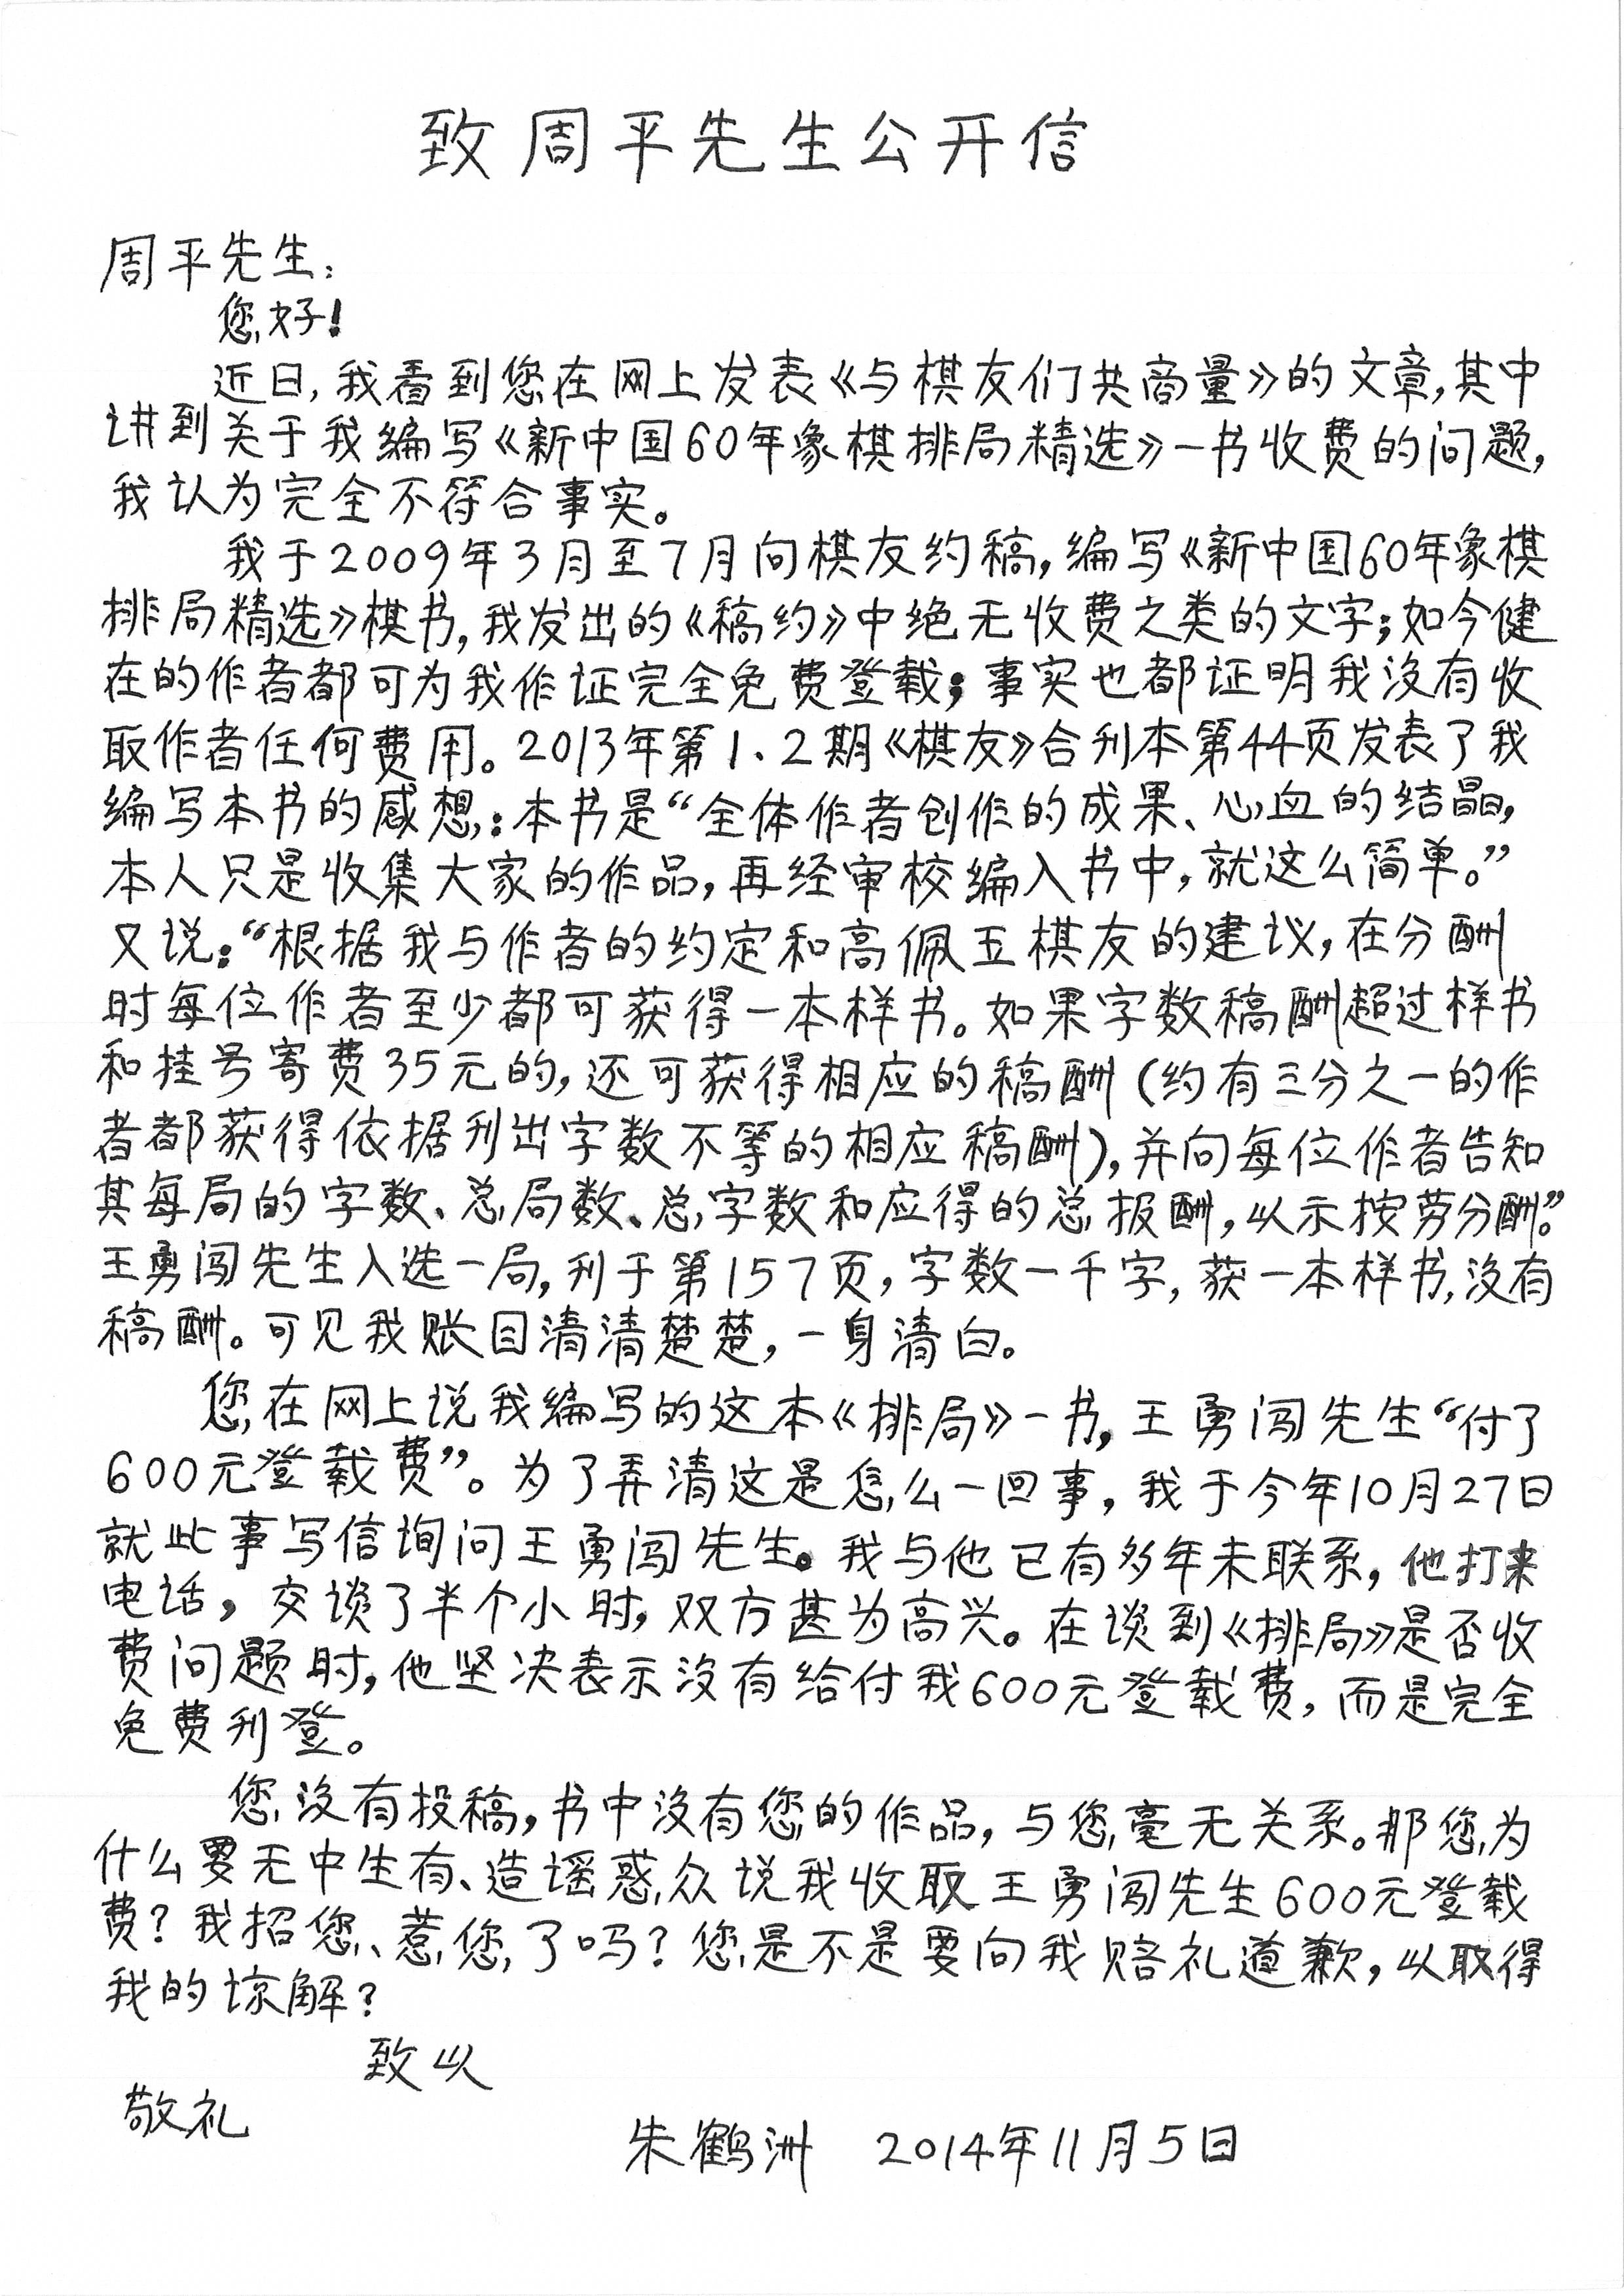 致周平先生公开信
周平先生：
您好！
近日，我看到您在网上发表《与棋友们共商量》的文章，其中
讲到关于我编写《新中国60年象棋排局精选》一书收费的问题，
我认为完全不符合事实。
我于2009年3月至7月向棋友约稿，编写《新中国60年象棋
排局精选》棋书，我发出的《稿约》中绝无收费之类的文字；如今健
在的作者都可为我作证完全免费登载；事实也都证明我没有收
取作者任何费用。2013年第1.2期《棋友》合刊本第44页发表了我
编写本书的感想：本书是“全体作者创作的成果、心血的结晶，
本人只是收集大家的作品，再经审校编入书中，就这么简单。”
又说：“根据我与作者的约定和高佩五棋友的建议，在分酬
时每位作者至少都可获得一本样书。如果字数稿酬超过样书
和挂号寄费35元的，还可获得相应的稿酬（约有三分之一的作
者都获得依据刊出字数不等的相应稿酬），并向每位作者告知
其每局的字数、总局数、总字数和应得的总报酬，以示按劳分酬。”
王勇闯先生入选一局，刊于第157页，字数一千字，获一本样书，没有
稿酬。可见我账目清清楚楚，一身清白。
您在网上说我编写的这本《排局》一书，王勇闯先生“付了
600元登载费”。为了弄清这是怎么一回事，我于今年10月27日
就此事写信询问王勇闯先生。我与他已有多年未联系，他打来
电话，交谈了半个小时，双方甚为高兴。在谈到《排局》是否收
费问题时，他坚决表示没有给付我600元登载费，而是完全
免费刊登。
您没有投稿，书中没有您的作品，与您毫无关系。那您为
什么要无中生有、造谣惑众说我收取王勇闯先生600元登载
费？我招您、惹您了吗？您是不是要向我赔礼道歉，以取得
我的谅解？
致以
敬礼
朱鹤洲 2014年11月5日